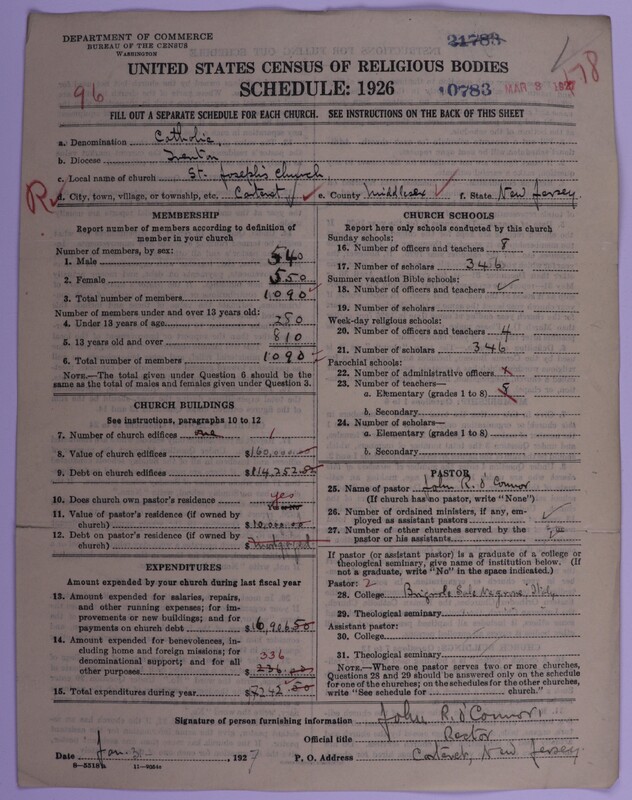 DEPARTMENT OF COMMERCE
BUREAU OF THE CENSUS
WASHINGTON
21783
UNITED STATES CENSUS OF RELIGIOUS BODIES
SCHEDULE: 1926
10783
MAR 8 1927
178
96
FILL OUT A SEPARATE SCHEDULE FOR EACH CHURCH. SEE INSTRUCTIONS ON THE BACK OF THIS SHEET
a. Denomination Catholic
b. Diocese Trenton
c. Local name of church St. Joseph's Church
R
d. City, town, village, or township, etc. Carteret e. County Middlesex f. State New Jersey
MEMBERSHIP
Report number of members according to definition of
member in your church
Number of members, by sex:
1. Male 540
2. Female 550
3. Total number of members 1090
Number of members under and over 13 years old:
4. Under 13 years of age 280
5. 13 years old and over 810
6. Total number of members 1090
NOTE.—The total given under Question 6 should be the
same as the total of males and females given under Question 3.
CHURCH BUILDINGS
See instructions, paragraphs 10 to 12
7. Number of church edifices one 1
8. Value of church edifices $160,000.00
9. Debt on church edifices $114,252.
10. Does church own pastor's residence yes
11. Value of pastor's residence (if owned by
church) $10,000.00
12. Debt on pastor's residence (if owned by
church) $
EXPENDITURES
Amount expended by your church during last fiscal year
13. Amount expended for salaries, repairs,
and other running expenses; for im-
provements or new buildings; and for
payments on church debt $16,906.50
14. Amount expended for benevolences, in-
cluding home and foreign missions; for
denominational support; and for all
other purposes $ 336
15. Total expenditures during year $
CHURCH SCHOOLS
Report here only schools conducted by this church
Sunday schools:
16. Number of officers and teachers 8
17. Number of scholars 346
Summer vacation Bible schools:
18. Number of officers and teachers
19. Number of scholars
Week-day religious schools:
20. Number of officers and teachers 4
21. Number of scholars 346
Parochial schools:
22. Number of administrative officers x
23. Number of teachers—
a. Elementary (grades 1 to 8) 5
b. Secondary
24. Number of scholars—
a. Elementary (grades 1 to 8)
b. Secondary
PASTOR
25. Name of pastor John R. O'Connor
(If church has no pastor, write "None")
26. Number of ordained ministers, if any, em-
ployed as assistant pastors
27. Number of other churches served by the
pastor or his assistants
If pastor (or assistant pastor) is a graduate of a college or
theological seminary, give name of institution below. (If
not a graduate, write "No" in the space indicated.)
Pastor: 2
28. College Brignole Sale Italy
29. Theological seminary
Assistant pastor:
30. College
31. Theological seminary
NOTE.—Where one pastor serves two or more churches,
Questions 28 and 29 should be answered only on the schedule
for one of the churches; on the schedules for the other churches,
write "See schedule for church."
Signature of person furnishing information John R. O'Connor
Official title Rector
Date Jan. , 1927 P. O. Address Carteret, New Jersey
8—5318 11—9564